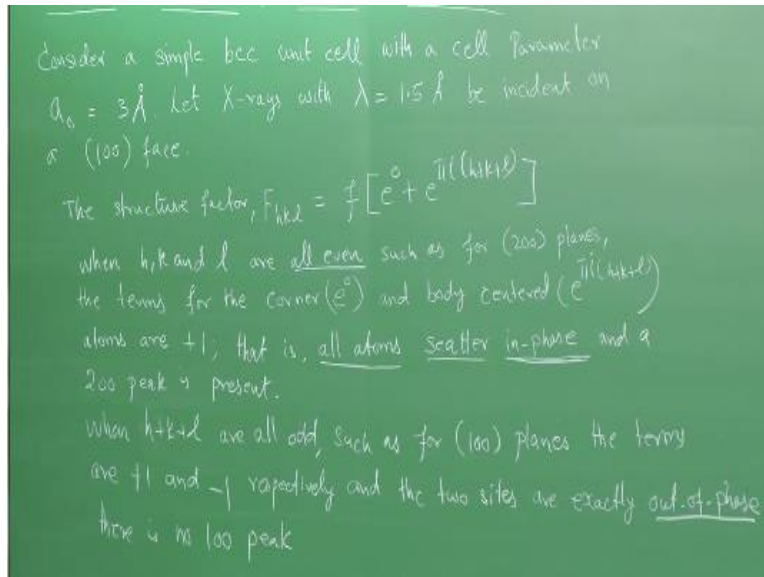 Consider a simple bcc unit cell with a cell Parameter
a₀ = 3Å. Let X-rays with λ = 1.5 Å be incident on
a (100) face.
The structure factor, F_hkl = f [e⁰ + e^πi(h+k+l)]
when h, k and l are all even such as for (200) planes,
the terms for the corner (e⁰) and body centered (e^πi(h+k+l))
atoms are +1; that is, all atoms scatter in-phase and a
200 peak is present.
When h+k+l are all odd, Such as for (100) planes the terms
are +1 and -1 respectively and the two sites are exactly out-of-phase
there is no 100 peak